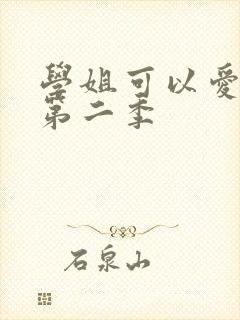 學姐可以愛
第二季
石泉山